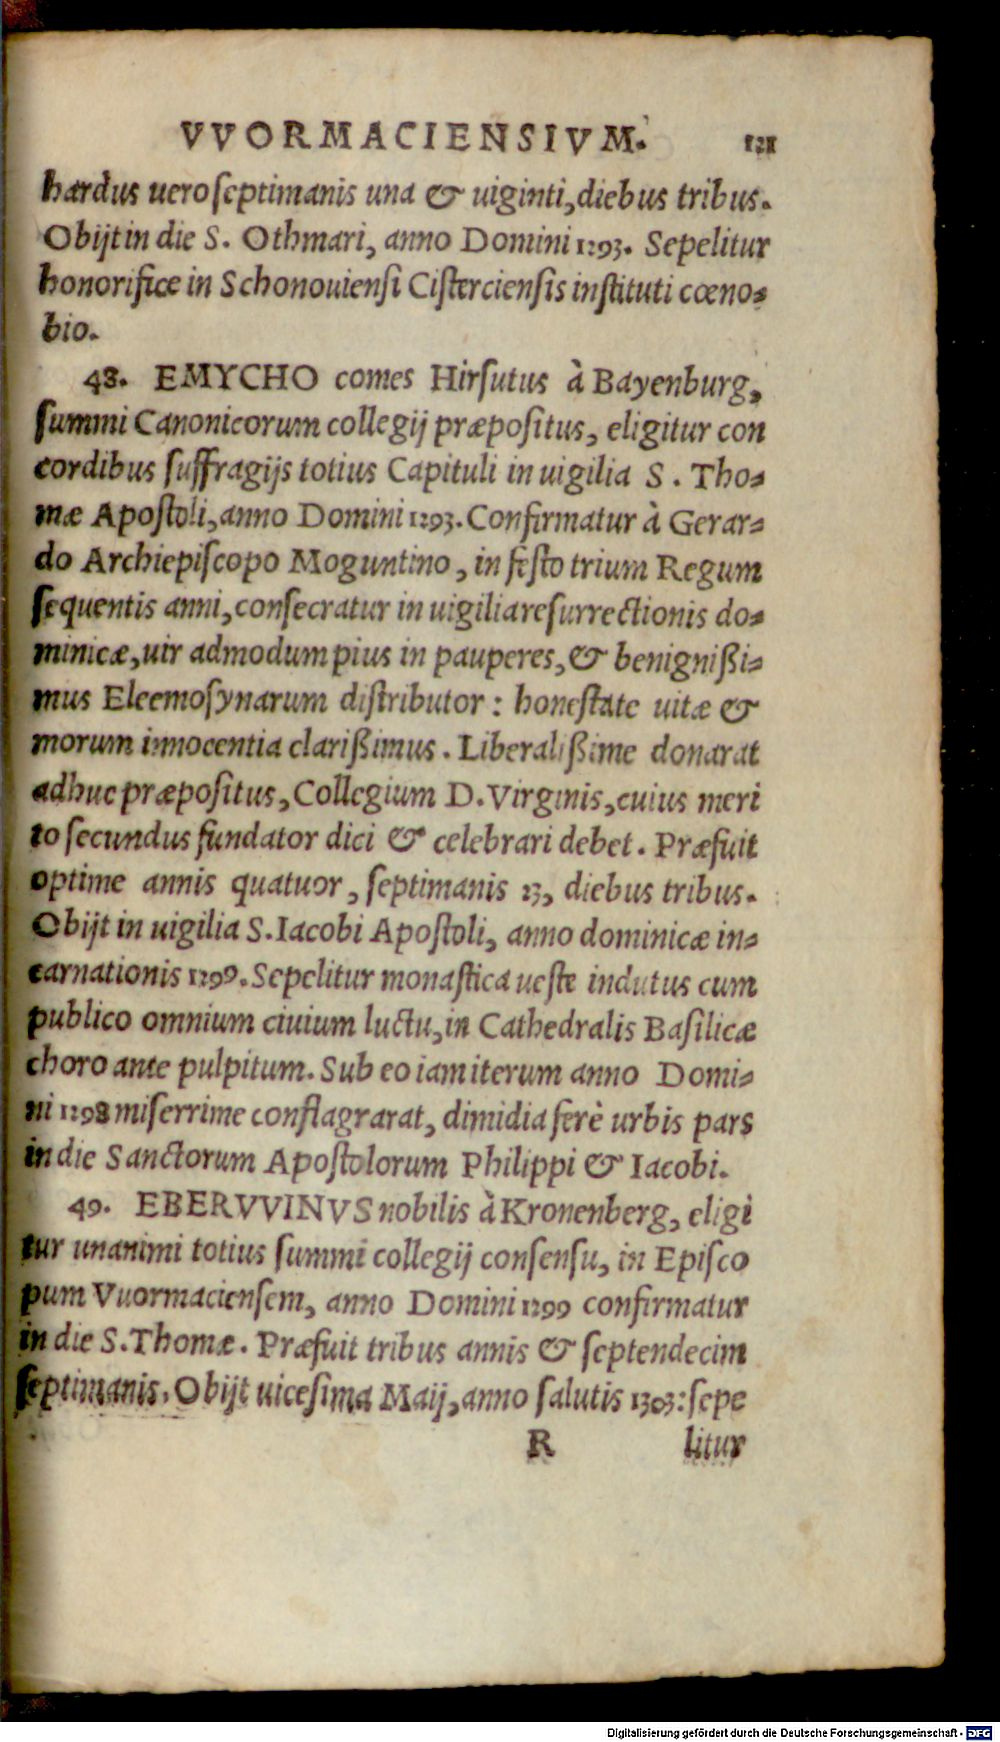 VVORMACIENSIVM. 121
hardus uero septimanis una & uiginti, diebus tribus.
Obijt in die S. Othmari, anno Domini 1293. Sepelitur
honorifice in Schonouiensi Cisterciensis instituti cœno-
bio.
48. EMYCHO comes Hirsutus à Bayenburg,
summi Canonicorum collegij præpositus, eligitur con
cordibus suffragijs totius Capituli in uigilia S. Tho-
mæ Apostoli, anno Domini 1293. Confirmatur à Gerar-
do Archiepiscopo Moguntino, in festo trium Regum
sequentis anni, consecratur in uigilia resurrectionis do-
minicæ, uir admodum pius in pauperes, & benignißi-
mus Eleemosynarum distributor: honestate uitæ &
morum innocentia clarißimus. Liberalißime donarat
adhuc præpositus, Collegium D. Virginis, cuius meri
to secundus fundator dici & celebrari debet. Præfuit
optime annis quatuor, septimanis 23, diebus tribus.
Obijt in uigilia S. Iacobi Apostoli, anno dominicæ in-
carnationis 1299. Sepelitur monastica ueste indutus cum
publico omnium ciuium luctu, in Cathedralis Basilicæ
choro ante pulpitum. Sub eo iam iterum anno Domi-
ni 1298 miserrime conflagrarat, dimidia ferè urbis pars
in die Sanctorum Apostolorum Philippi & Iacobi.
49. EBERVVINVS nobilis à Kronenberg, eligi
tur unanimi totius summi collegij consensu, in Episco
pum Vuormaciensem, anno Domini 1299 confirmatur
in die S. Thomæ. Præfuit tribus annis & septendecim
septimanis. Obijt uicesima Maij, anno salutis 1303: sepe
R litur
Digitalisierung gefördert durch die Deutsche Forschungsgemeinschaft - DFG